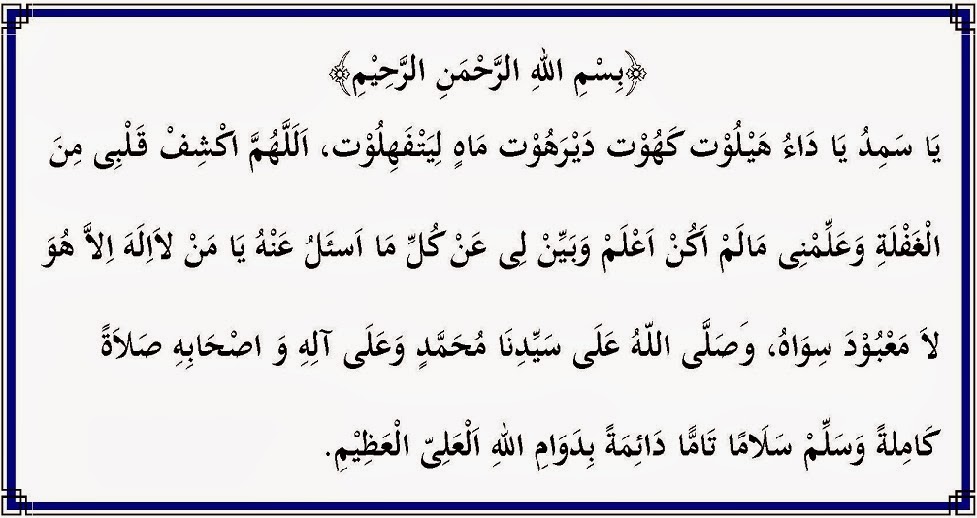 ﴿بِسْمِ اللهِ الرَّحْمَنِ الرَّحِيْمِ﴾
يَا سَمِدُ يَا دَاءُ هَيْلُوْت كَهُوْت دَيْرَهُوْت مَاهٍ لِيَتْفَهِلُوْت، اَللَّهُمَّ اكْشِفْ قَلْبِى مِنَ
الْغَفْلَةِ وَعَلِّمْنِى مَالَمْ اَكُنْ اَعْلَمْ وَبَيِّنْ لِى عَنْ كُلِّ مَا اَسئَلُ عَنْهُ يَا مَنْ لاَاِلَهَ اِلاَّ هُوَ
لاَ مَعْبُوْدَ سِوَاهُ، وَصَلَّى اللّهُ عَلَى سَيِّدِنَا مُحَمَّدٍ وَعَلَى آلِهِ وَ اصْحَابِهِ صَلاَةً
كَامِلةً وَسَلِّمْ سَلَامًا تَامًّا دَائِمَةً بِدَوَامِ اللهِ اَلْعَلِىّ الْعَظِيْمِ.